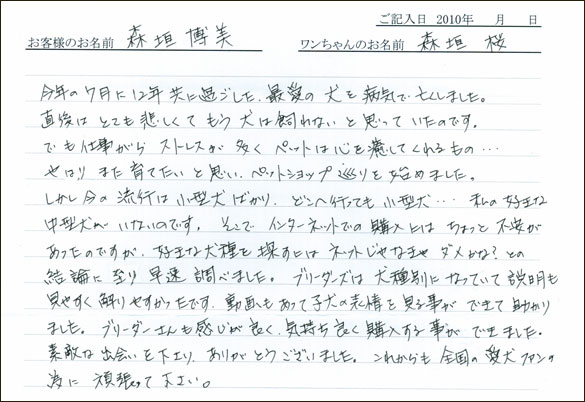 ご記入日 2010年 月 日
お客様のお名前 森垣 博美 ワンちゃんのお名前 森垣 桜
今年の7月に12年共に過ごした、最愛の犬を病気で亡くしました。
直後はとても悲しくてもう犬は飼れないと思っていたのです。
でも仕事がらストレスが多くペットは心を癒してくれるもの…
やはりまた育てたいと思い、ペットショップ巡りを始めました。
しかし今の流行は小型犬ばかり、どこへ行っても小型犬… 私の好きな
中型犬がいないのです。そこでインターネットでの購入にはちょっと不安が
あったのですが、好きな犬種を探すにはネットじゃなきゃダメかな?との
結論に至り早速調べました。ブリーダーズは犬種別になっていて説明も
見やすく解りやすかったです。動画もあって子犬の表情を見る事ができて助かり
ました。ブリーダーさんも感じが良く、気持ち良く購入する事ができました。
素敵な出会いを下さり、ありがとうございました。これからも全国の愛犬ファンの
為に頑張って下さい。